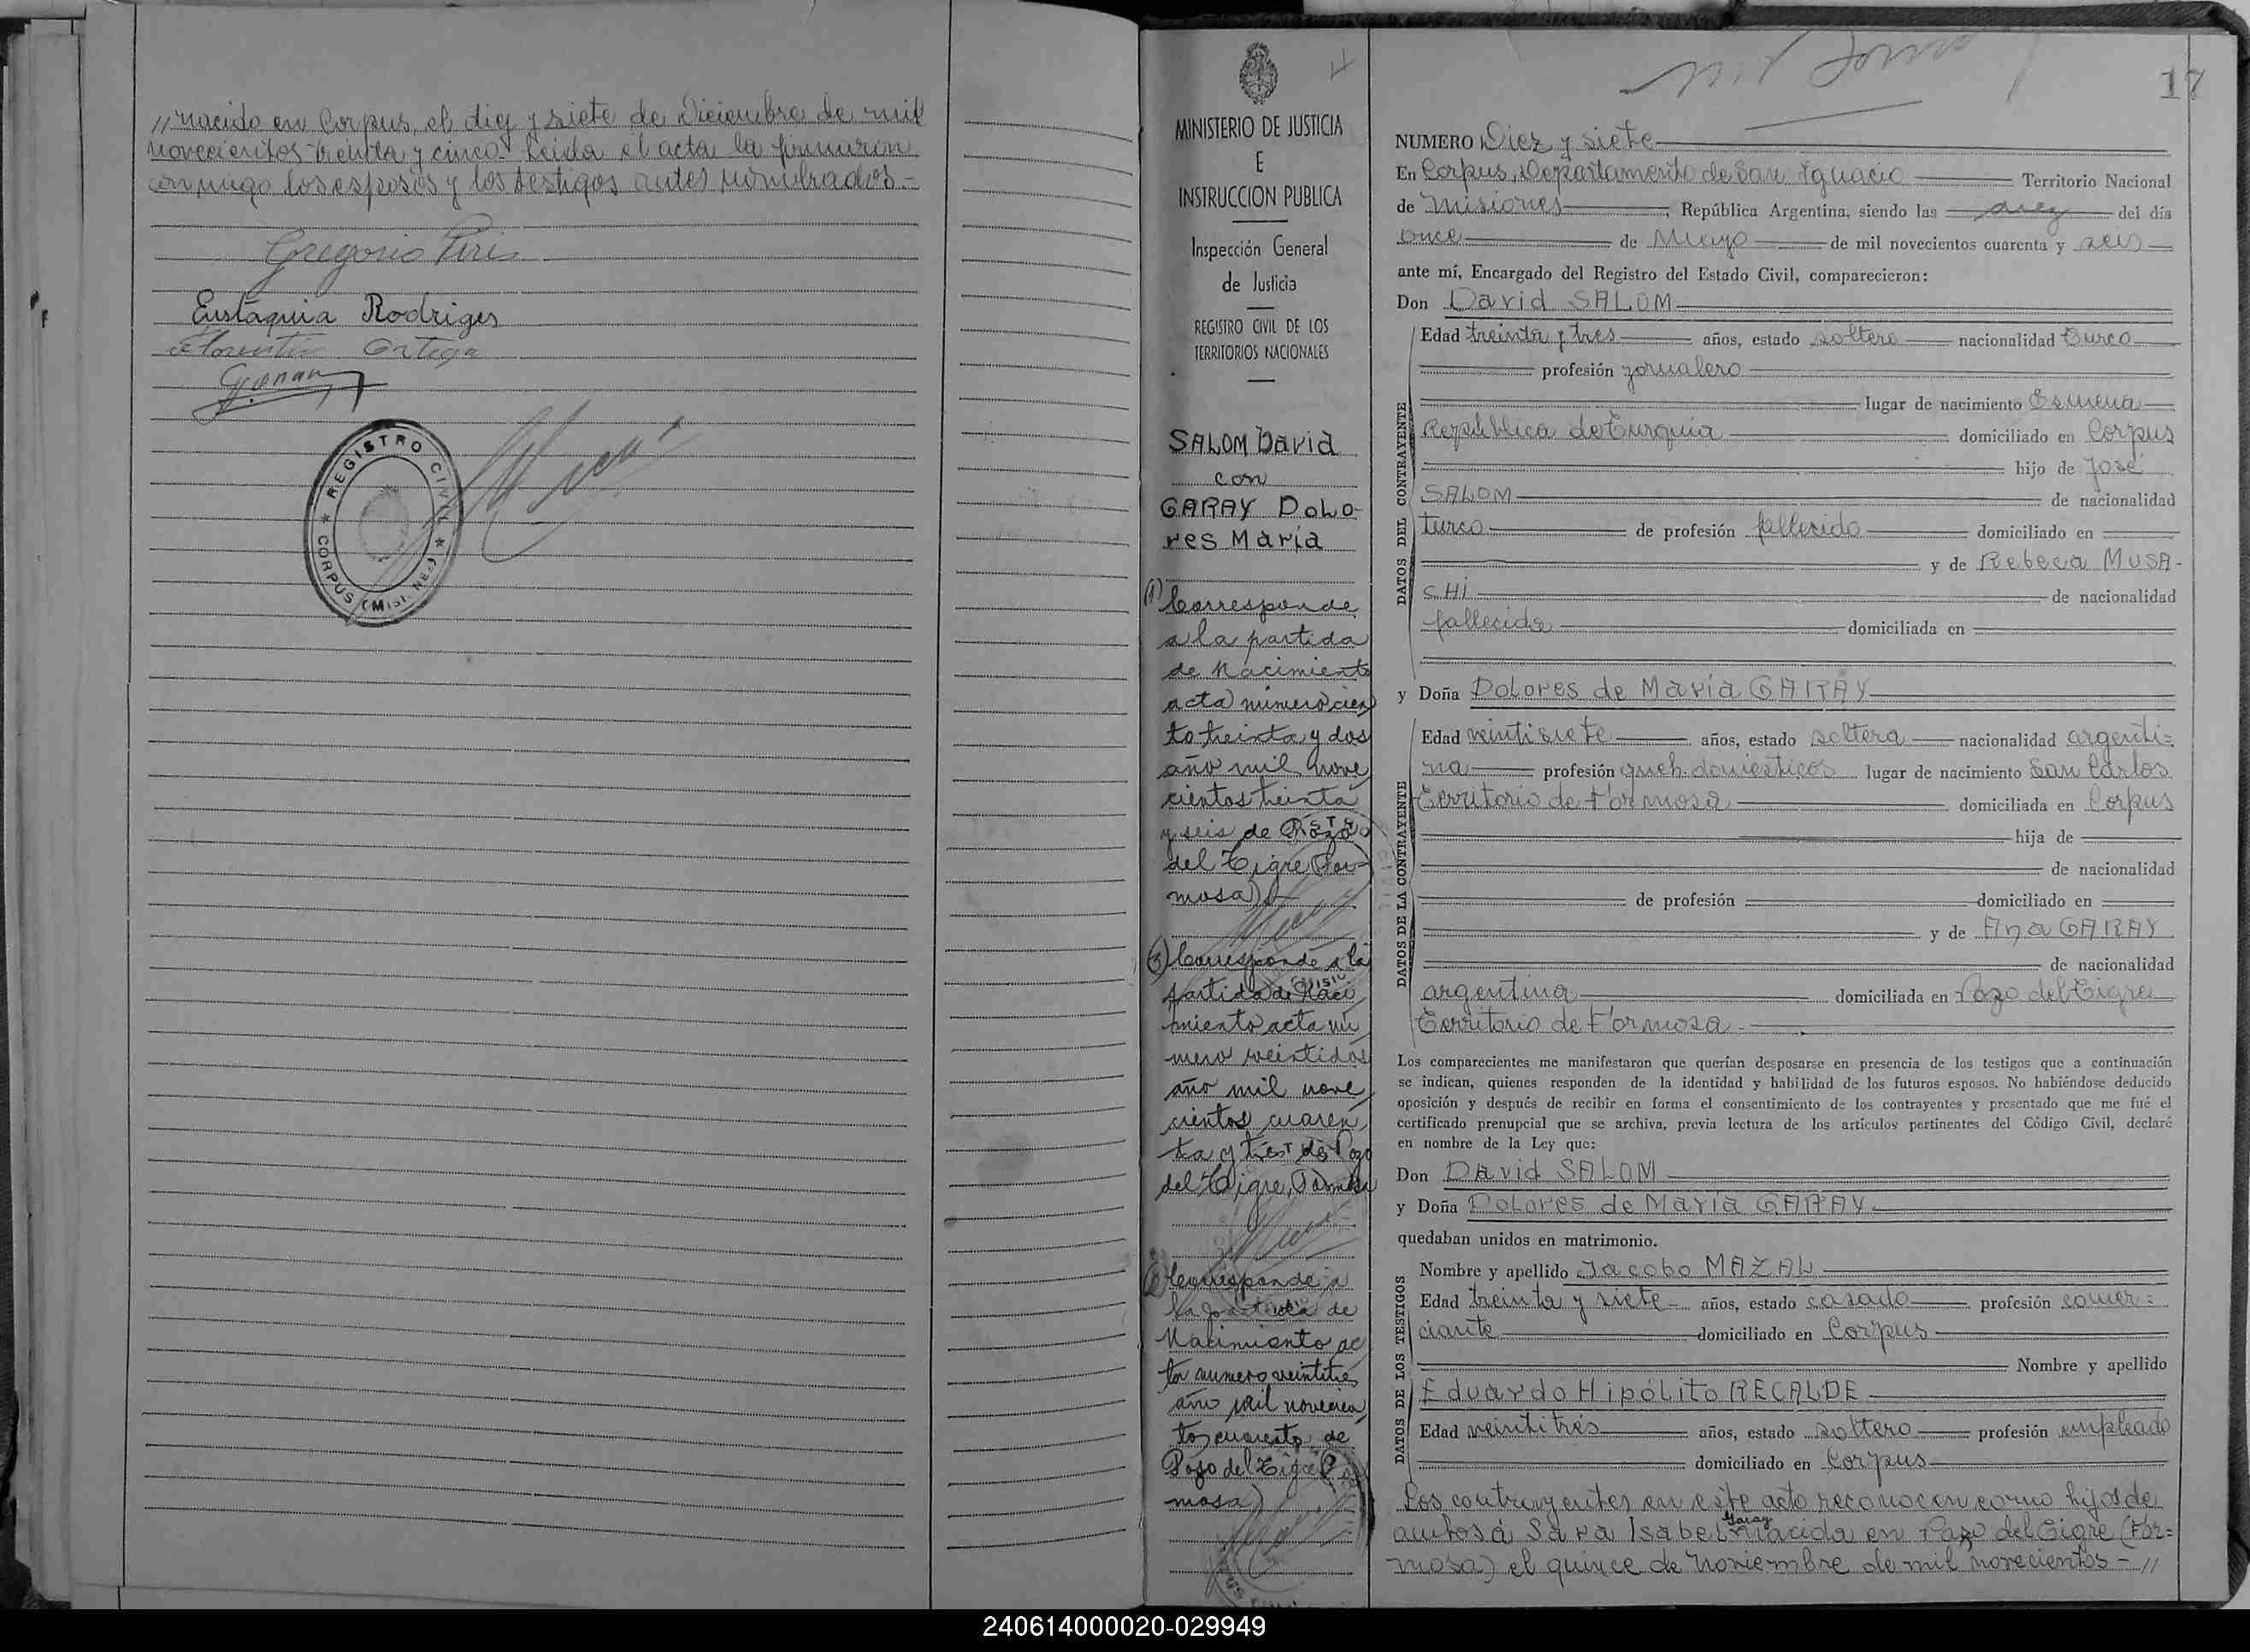 // nacido en Corpus, el diez y siete de Diciembre de mil
novecientos treinta y cinco. Leida el acta la firmaron
conmigo los esposos y los testigos antes nombrados.-
Gregorio Piris
Eustaquia Rodriges
Florentin Ortega
REGISTRO CIVIL
CORPUS (Misiones)
MINISTERIO DE JUSTICIA
E
INSTRUCCION PUBLICA
Inspección General
de Justicia
REGISTRO CIVIL DE LOS
TERRITORIOS NACIONALES
SALOM David
con
GARAY Dolo-
res María
(1) Corresponde
a la partida
de Nacimiento
acta número cien
to treinta y dos
año mil nove
cientos treinta
y seis de Pozo
del Tigre (For-
mosa)
Corresponde a la
partida de Naci
miento acta nú
mero veintidos
año mil nove
cientos cuaren
ta y tres de Pozo
del Tigre, Formosa
Corresponde a
la partida de
Nacimiento ac
ta numero veintitres
año mil novecien
tos cuarenta de
Pozo del Tigre (For
mosa)
17
NUMERO Diez y siete
En Corpus, Departamento de San Ignacio Territorio Nacional
de Misiones, República Argentina, siendo las diez del día
once de Mayo de mil novecientos cuarenta y seis
ante mí, Encargado del Registro del Estado Civil, comparecieron:
Don David SALOM
DATOS DEL CONTRAYENTE
Edad treinta y tres años, estado soltero nacionalidad Turco
profesión jornalero
lugar de nacimiento Esmena
República de Turquía domiciliado en Corpus
hijo de José
SALOM de nacionalidad
turco de profesión fallecido domiciliado en
y de Rebeca MUSA-
CHI de nacionalidad
fallecida domiciliada en
y Doña Dolores de María GARAY
DATOS DE LA CONTRAYENTE
Edad veintisiete años, estado soltera nacionalidad argenti-
na profesión queh. domesticos lugar de nacimiento San Carlos
Territorio de Formosa domiciliada en Corpus
hija de
de nacionalidad
de profesión domiciliado en
y de Ana GARAY
de nacionalidad
argentina domiciliada en Pozo del Tigre
Territorio de Formosa
Los comparecientes me manifestaron que querían desposarse en presencia de los testigos que a continuación
se indican, quienes responden de la identidad y habilidad de los futuros esposos. No habiéndose deducido
oposición y después de recibir en forma el consentimiento de los contrayentes y presentado que me fué el
certificado prenupcial que se archiva, previa lectura de los artículos pertinentes del Código Civil, declaré
en nombre de la Ley que:
Don David SALOM
y Doña Dolores de María GARAY
quedaban unidos en matrimonio.
DATOS DE LOS TESTIGOS
Nombre y apellido Jacobo MAZAL
Edad treinta y siete años, estado casado profesión comer-
ciante domiciliado en Corpus
Nombre y apellido
Eduardo Hipólito RECALDE
Edad veintitrés años, estado soltero profesión empleado
domiciliado en Corpus
Los contrayentes en este acto reconocen como hijos de
ambos á Sara Isabel Garay nacida en Pozo del Tigre (For-
mosa) el quince de Noviembre de mil novecientos - //
240614000020-029949